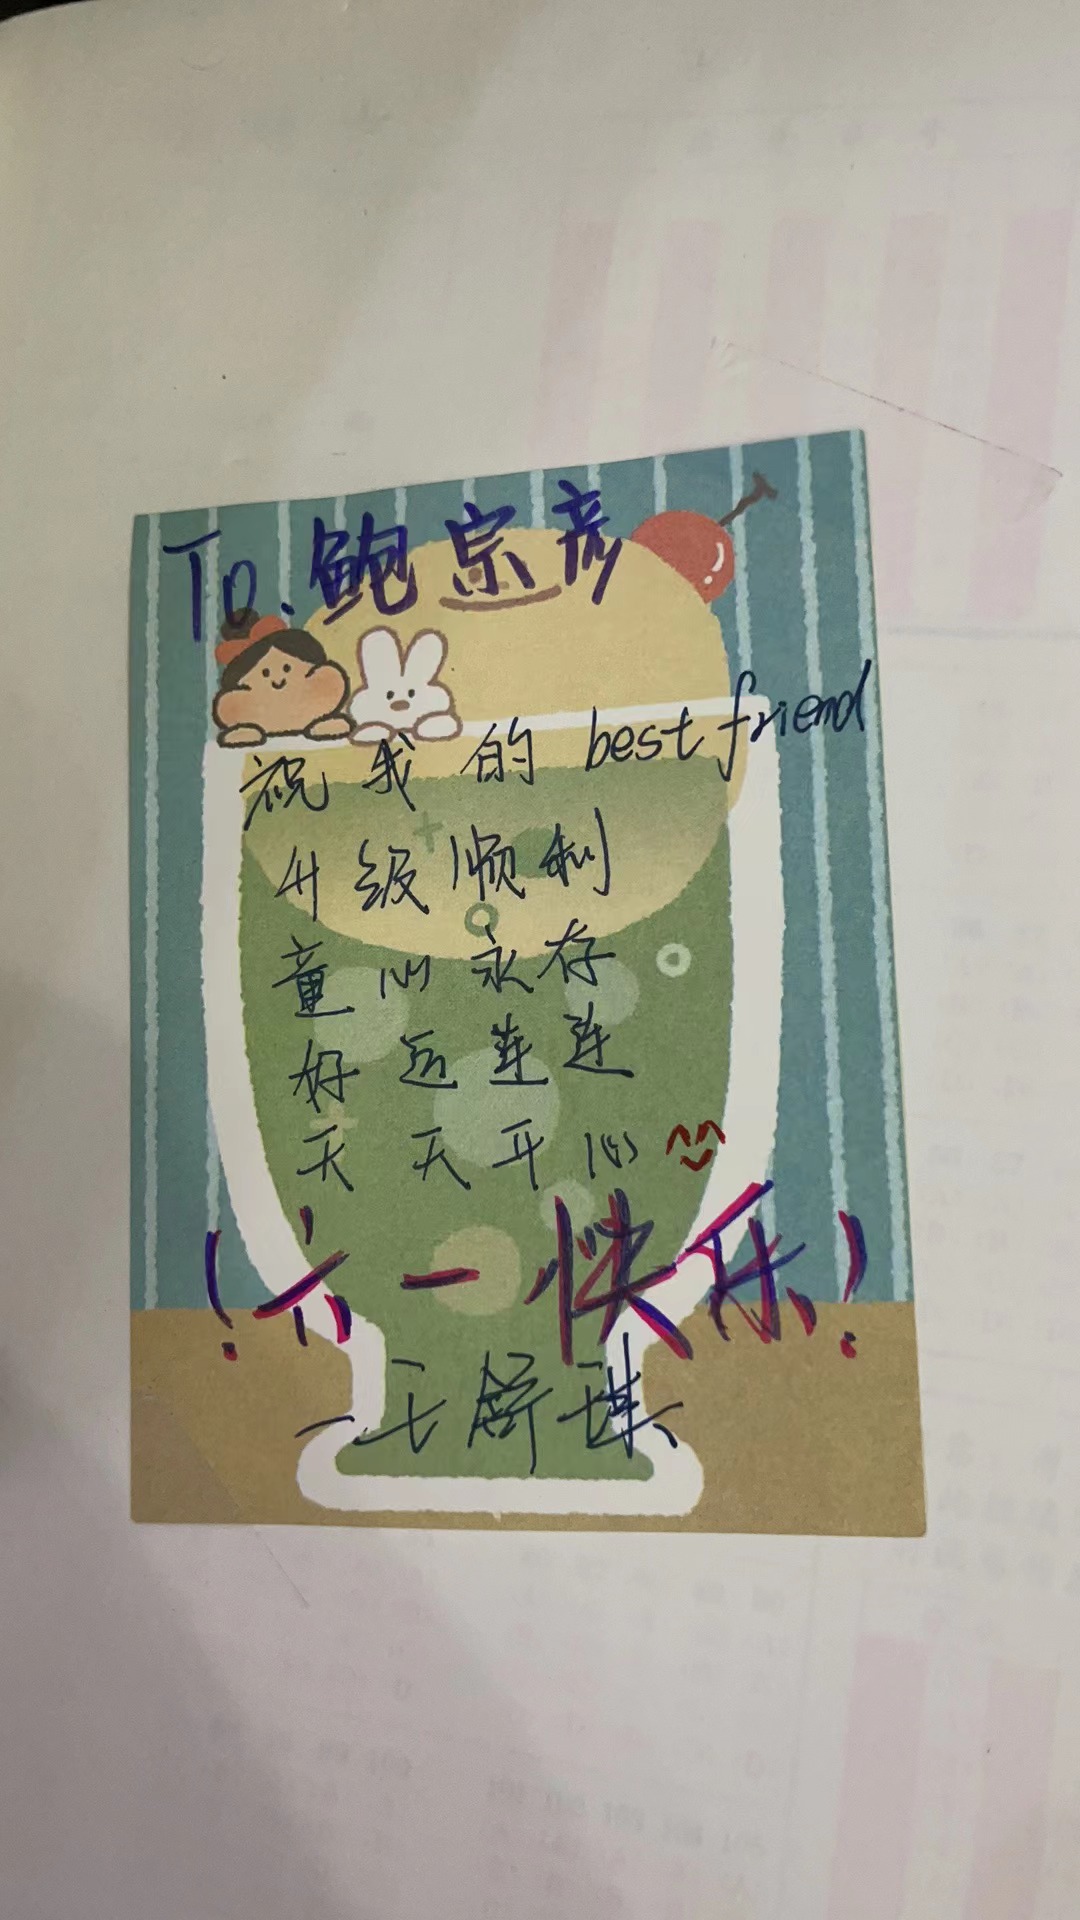 To.鲍宗彦
祝我的 best friend
升级顺利
童心永存
好运连连
天天开心
!六一快乐!
—王舒琪